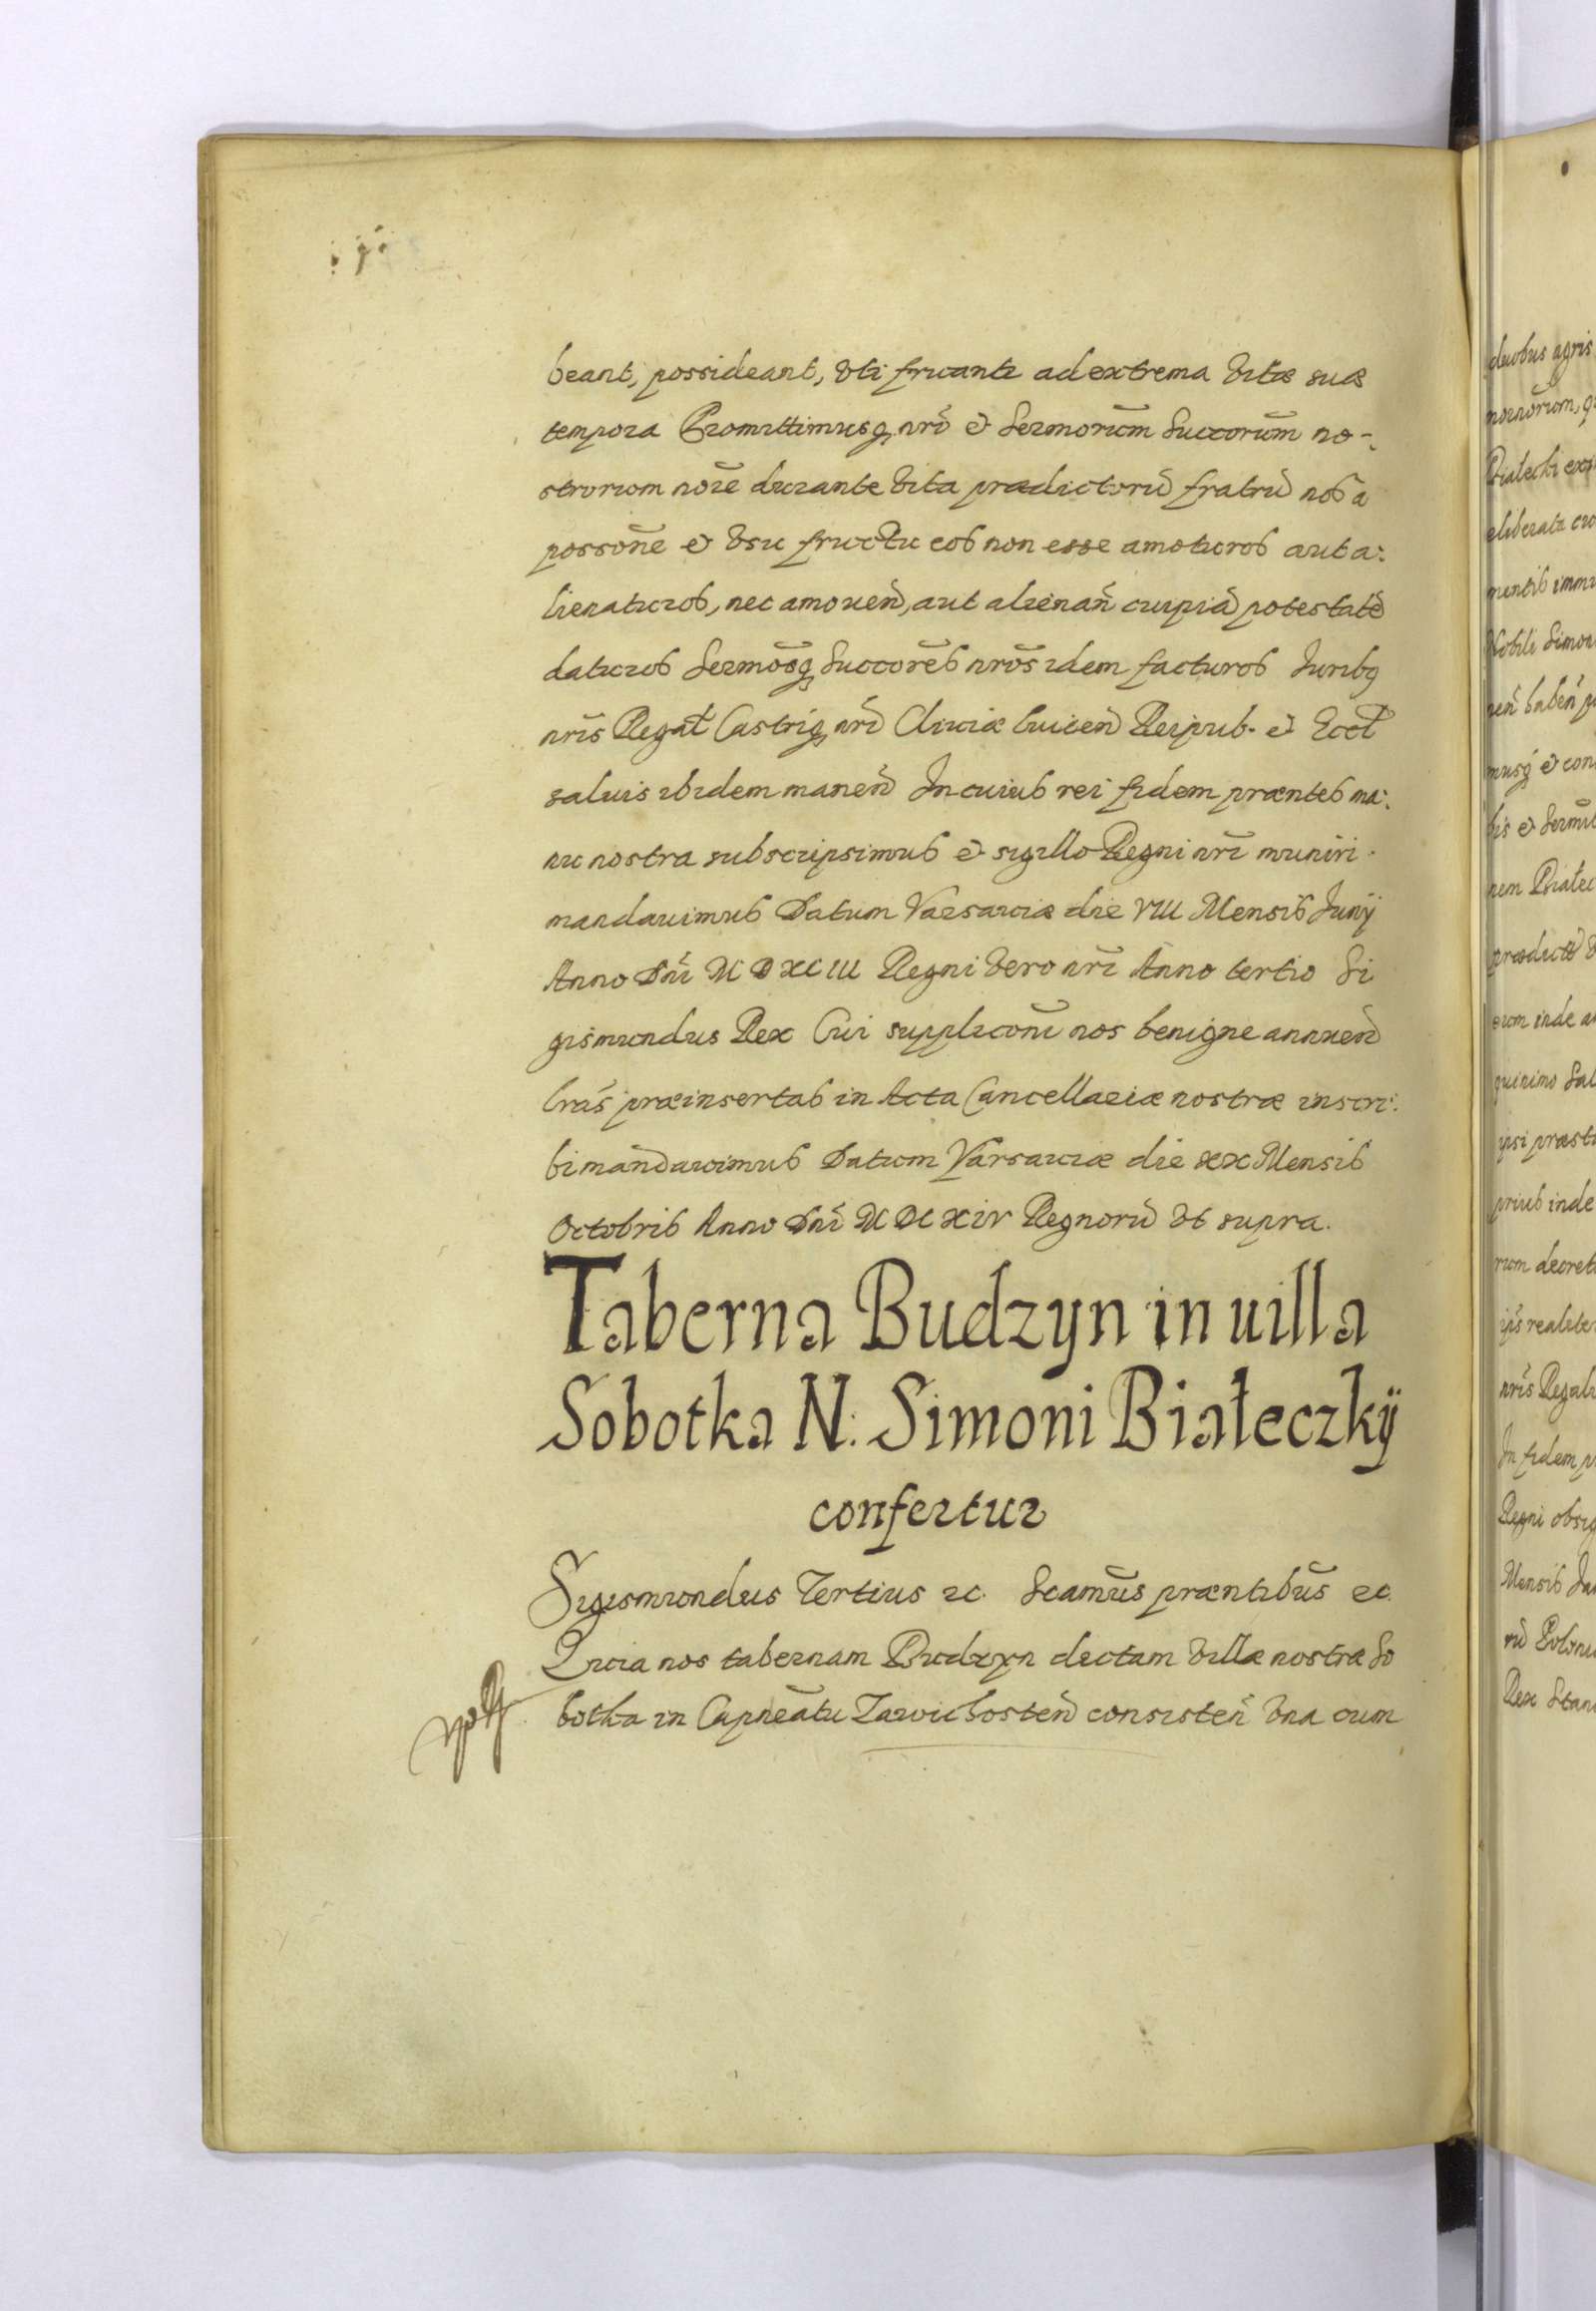 beant, possideant, vti fruantr ad extrema vitæ suæ
tempora Promittimusq, nrō & Sermorūm Succorūm no-
strorum noīe durante vita prædictorū fratrū nos a
possonē & vsu fructu eos non esse amoturos aut a:
lienaturos, nec amouen̄, aut alienan̄ cuipiā potestatē
daturos Sermosq̄ Succorēs nros̄ idem facturos Juribq
nris̄ Regal Castriq nrī huicen̄ Reipub. & Eccl
saluis ibidem manen̄ In cuius rei fidem præntes ma:
nu nostra subscripsimus & sigillo Regni nrī muniri.
mandauimus Datum Varsauiæ die VIII Mensis Junij
Anno Dnī M D XCIII Regni vero nrī Anno tertio Si
gismundus Rex Cui suppliconī nos benigne annuen̄
lrās præinsertas in Acta Cancellariæ nostræ inscri:
bi mandauimus Datum Varsauiæ die xx Mensis
Octobris Anno Dnī M DC XIV Regnorū vt supra.
Taberna Budzyn in uilla
Sobotka N: Simoni Białeczkÿ
confertur
Sigismundus Tertius ec. Scamūs præntibūs ec
Quia nos tabernam Budzyn dictam villæ nostræ So
botka in Capneātu Zawichosten̄ consisten̄ vna cum
duobus agris
Białecki
eliberatr
Nobili Simon
musq & con
nem Białec
inde
quinimo
ipsi præst
prius inde
rum decret
nris̄ Regali
In fidem
Regni obsig
Mensis
Rex